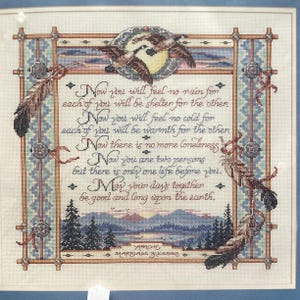 Now you will feel no rain for
each of you will be shelter for the other.
Now you will feel no cold for
each of you will be warmth for the other.
Now there is no more loneliness
Now you are two persons
but there is only one life before you.
May your days together
be good and long upon the earth.
APACHE
MARRIAGE BLESSING